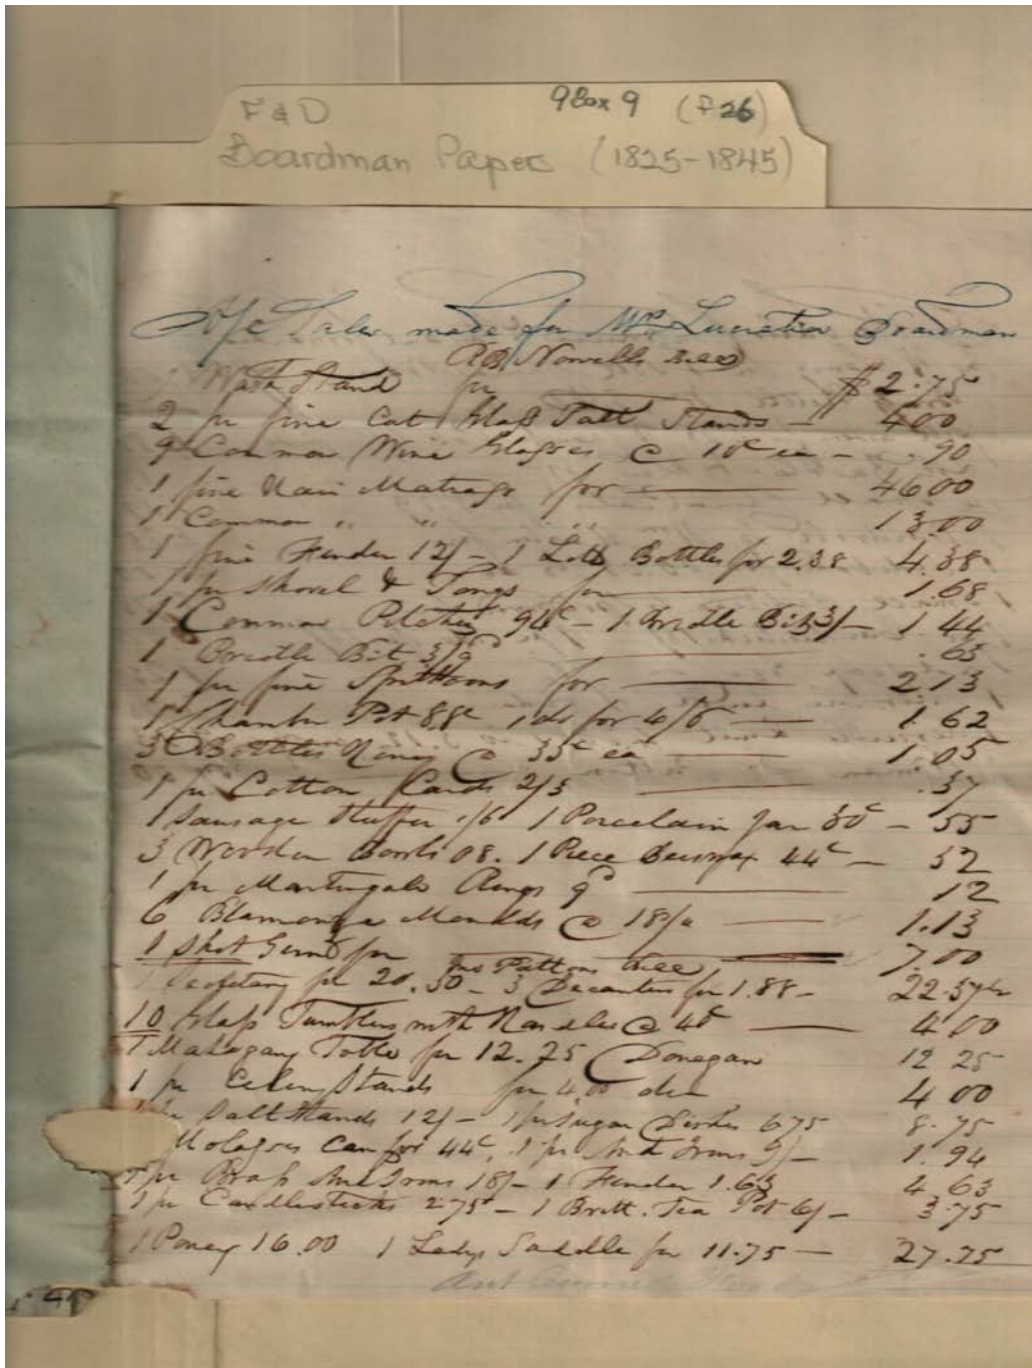 F & D 9Box 9 (f 26)
Boardman Papers (1825-1845)
A/c Sales made for Mrs Lucretia Boardman
AB Nowells recd
Wash Stand for $2.75
2 pr fine Cut Glass Salt Stands - 4.00
9 Common Wine Glasses @ 10c ea - .90
1 fine Hair Matrass for 46.00
1 Common " " " 13.00
1 fine Fender 12/- 1 Lott Bottles for 2.38 4.38
1 pr Shovel & Tongs for 1.68
1 Common Pitcher 94c - 1 Bridle Bit 3/- 1.44
1 Bridle Bit 3/9 .63
1 pr fine Spittoons for 2.13
1 Chamber Pot 88c 1 do for 4/6 1.62
3 Bottles Honey @ 35c ea 1.05
1 pr Cotton Cards 2/3 .37
1 Sausage Stuffer 1/6 1 Porcelain Jar 30c - 55
3 Wooden Bowls 08. 1 Piece Beeswax 44c - 52
1 pr Martingale Rings 9d 12
6 Blamonge Moulds @ 18/a 1.13
1 Shot Gun for 7.00
Jno Pattons
1 Secretary for 20.50 - 3 Decanters for 1.88 - 22.37 1/2
10 Glass Tumblers with Handles @ 40c 4.00
1 Mahogany Table for 12.25 Donegan 12 25
1 pr Stands for 4.00 4 00
pr Salt Stands 12/- 1 pr Sugar Dishes 6.75 8.75
Molasses Can for 44c, 1 pr And Irons 9/- 1.94
1 pr Brass And Irons 18/- 1 Fender 1.63 4 63
1 pr Candlesticks 2.75 - 1 Britt. Tea Pot 6/- 3.75
1 Poney 16.00 1 Ladys Saddle for 11.75 - 27.75